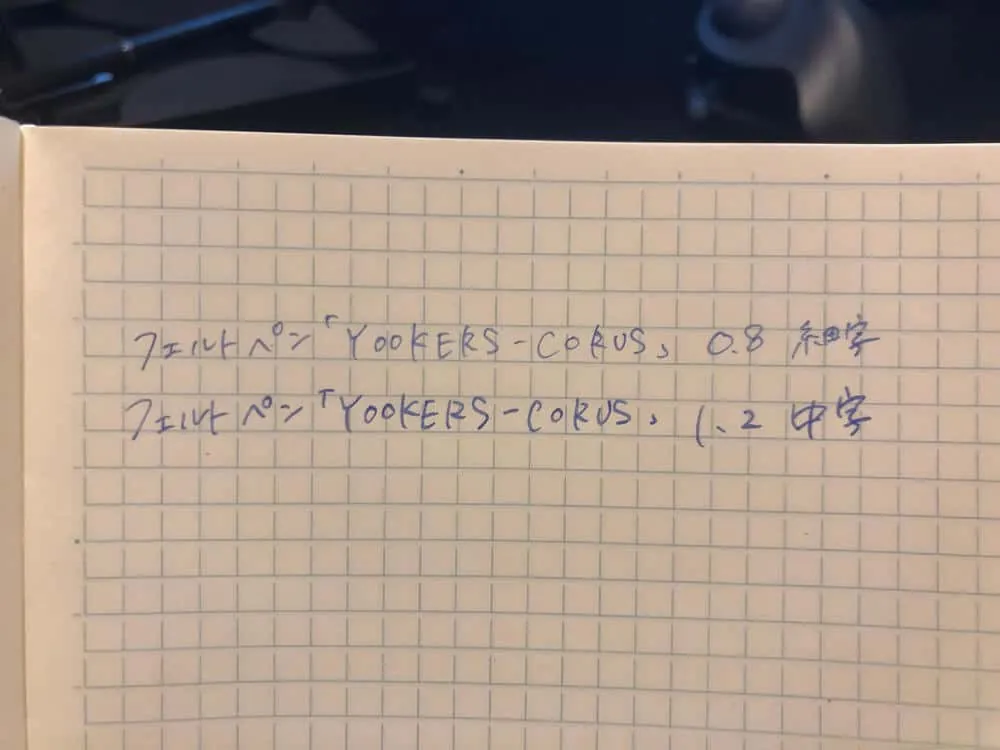 フェルトペン「YOOKERS-CORUS」 0.8 細字
フェルトペン「YOOKERS-CORUS」 1.2 中字